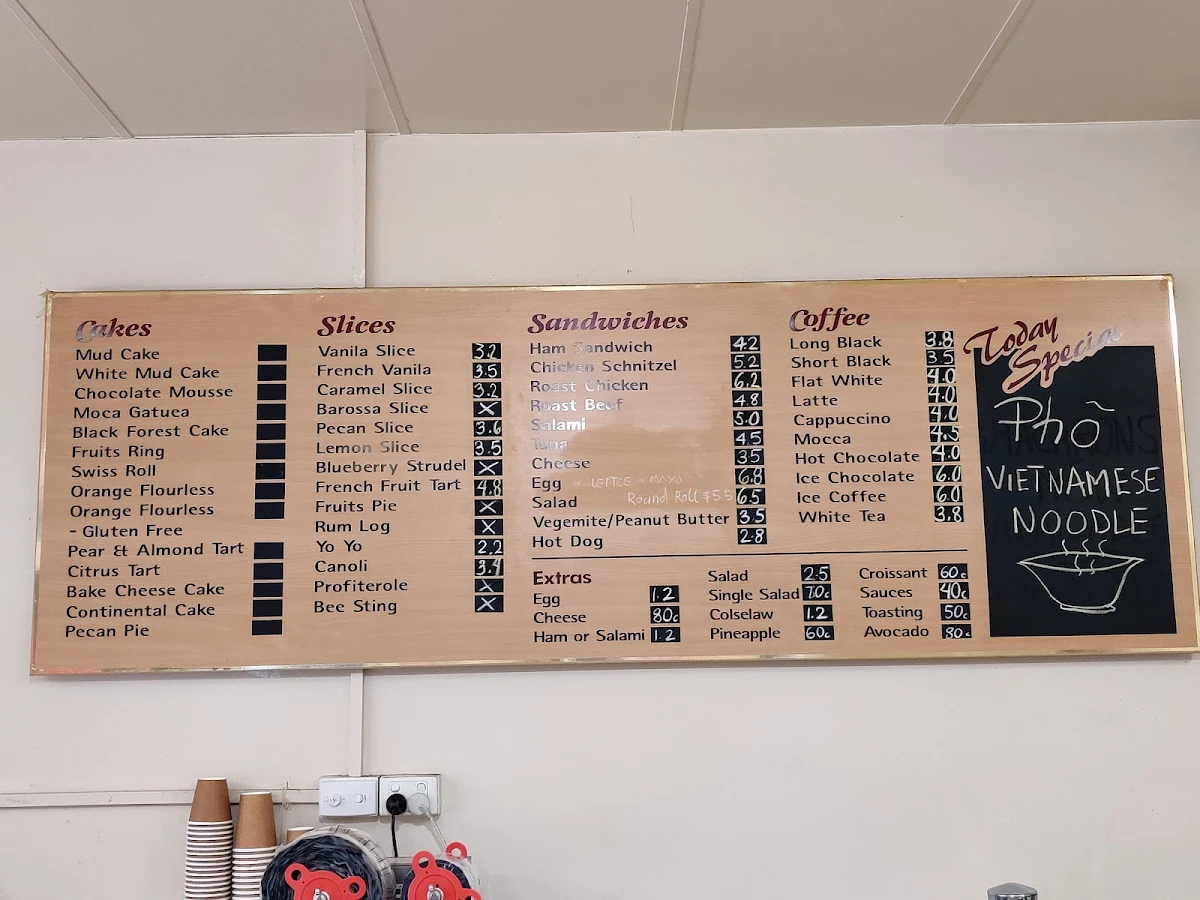 Cakes
Mud Cake
White Mud Cake
Chocolate Mousse
Moca Gatuea
Black Forest Cake
Fruits Ring
Swiss Roll
Orange Flourless
Orange Flourless
- Gluten Free
Pear & Almond Tart
Citrus Tart
Bake Cheese Cake
Continental Cake
Pecan Pie
Slices
Vanila Slice 3.2
French Vanila 3.5
Caramel Slice 3.2
Barossa Slice X
Pecan Slice 3.6
Lemon Slice 3.5
Blueberry Strudel X
French Fruit Tart 4.8
Fruits Pie X
Rum Log X
Yo Yo 2.2
Canoli 3.4
Profiterole X
Bee Sting X
Sandwiches
Ham Sandwich 4.2
Chicken Schnitzel 5.2
Roast Chicken 6.2
Roast Beef 4.8
Salami 5.0
Tuna 4.5
Cheese 3.5
Egg MAYO 6.8
Salad Round Roll $5.5 6.5
Vegemite/Peanut Butter 3.5
Hot Dog 2.8
Extras
Egg 1.2
Cheese 80c
Ham or Salami 1.2
Salad 2.5
Single Salad 70c
Colselaw 1.2
Pineapple 60c
Croissant 60c
Sauces 40c
Toasting 50c
Avocado 80c
Coffee
Long Black 3.8
Short Black 3.5
Flat White 4.0
Latte 4.0
Cappuccino 4.0
Mocca 4.5
Hot Chocolate 4.0
Ice Chocolate 6.0
Ice Coffee 6.0
White Tea 3.8
Today
Special
Phở
VIETNAMESE
NOODLE